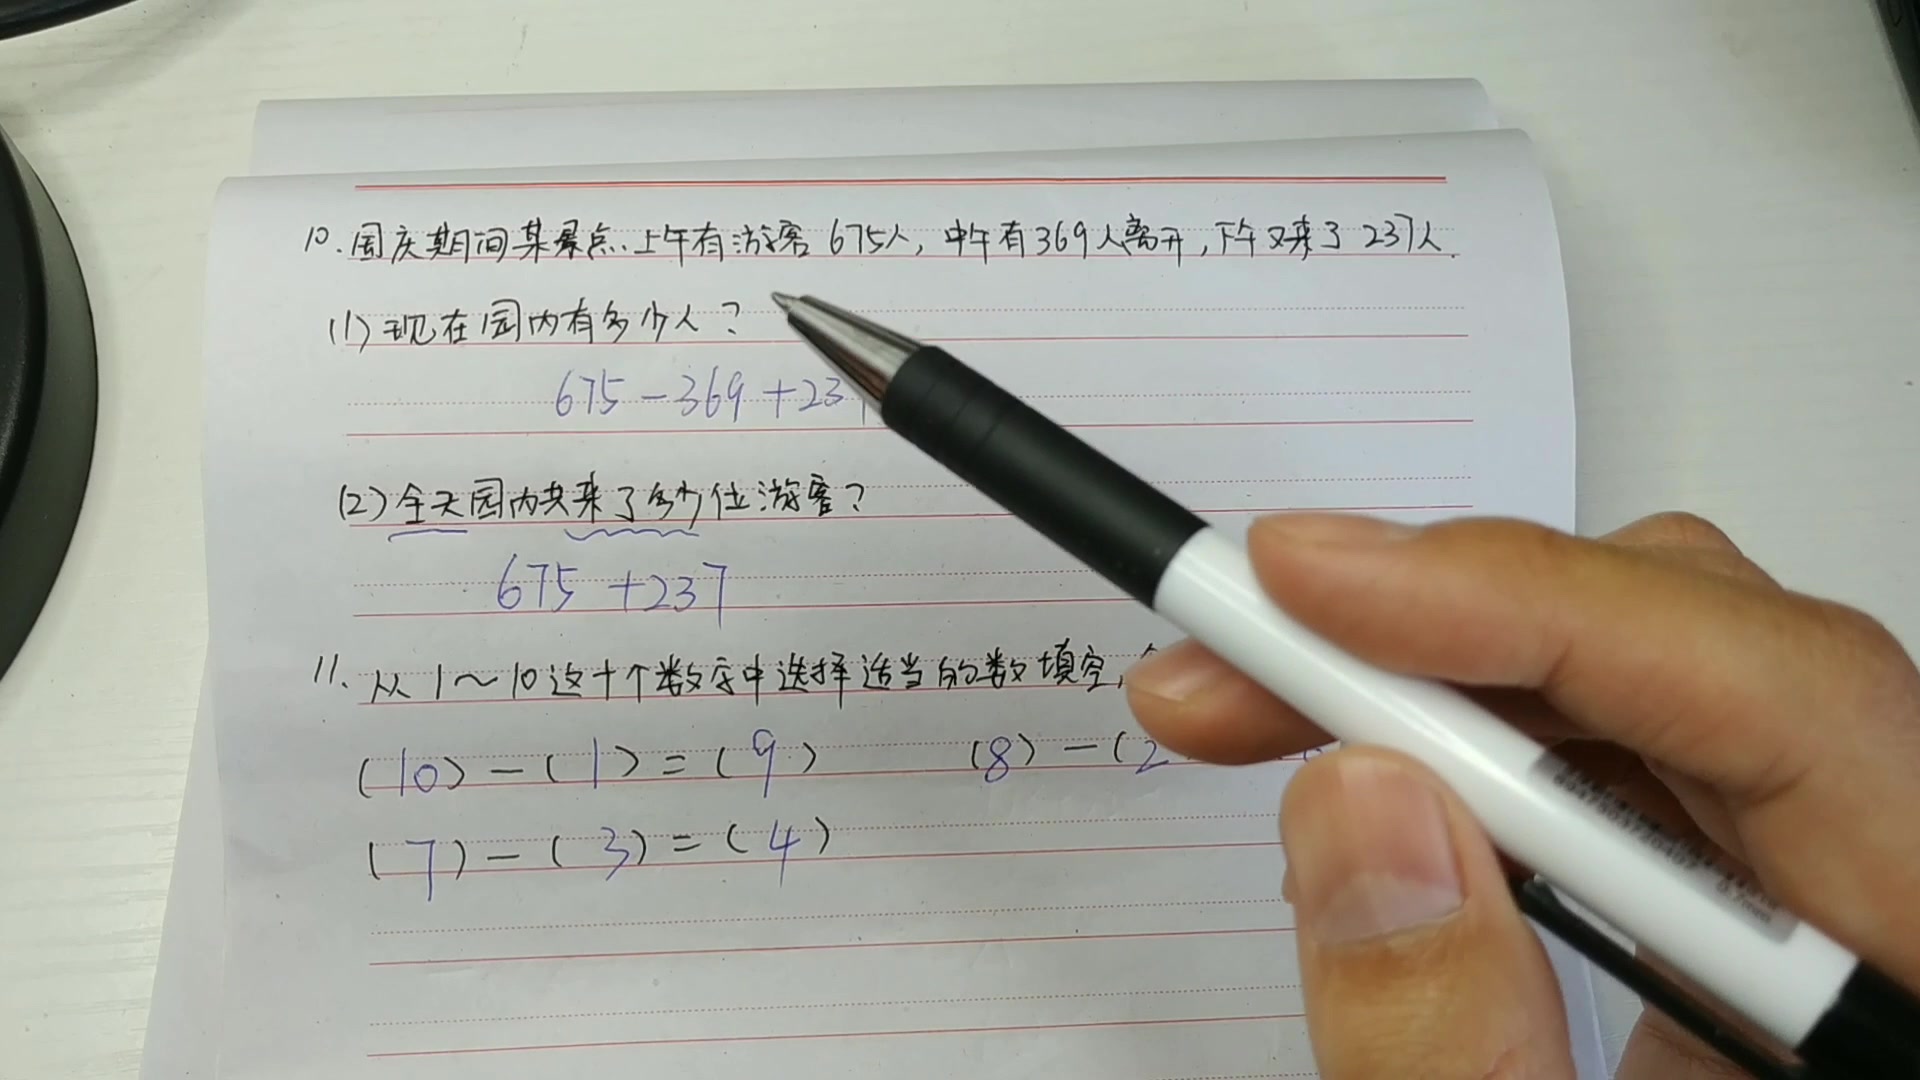 10.国庆期间某景点上午有游客675人,中午有369人离开,下午又来了237人.
(1)现在园内有多少人?
675-369+23
(2)全天园内共来了多少位游客?
675+237
11.从1~10这十个数字中选择适当的数填空,
(10)-(1)=(9) (8)-(2
(7)-(3)=(4)